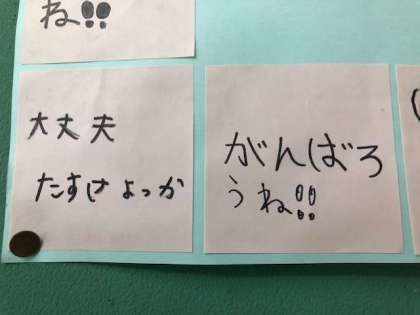 ね!!
大丈夫
たすけよっか
がんばろ
うね!!